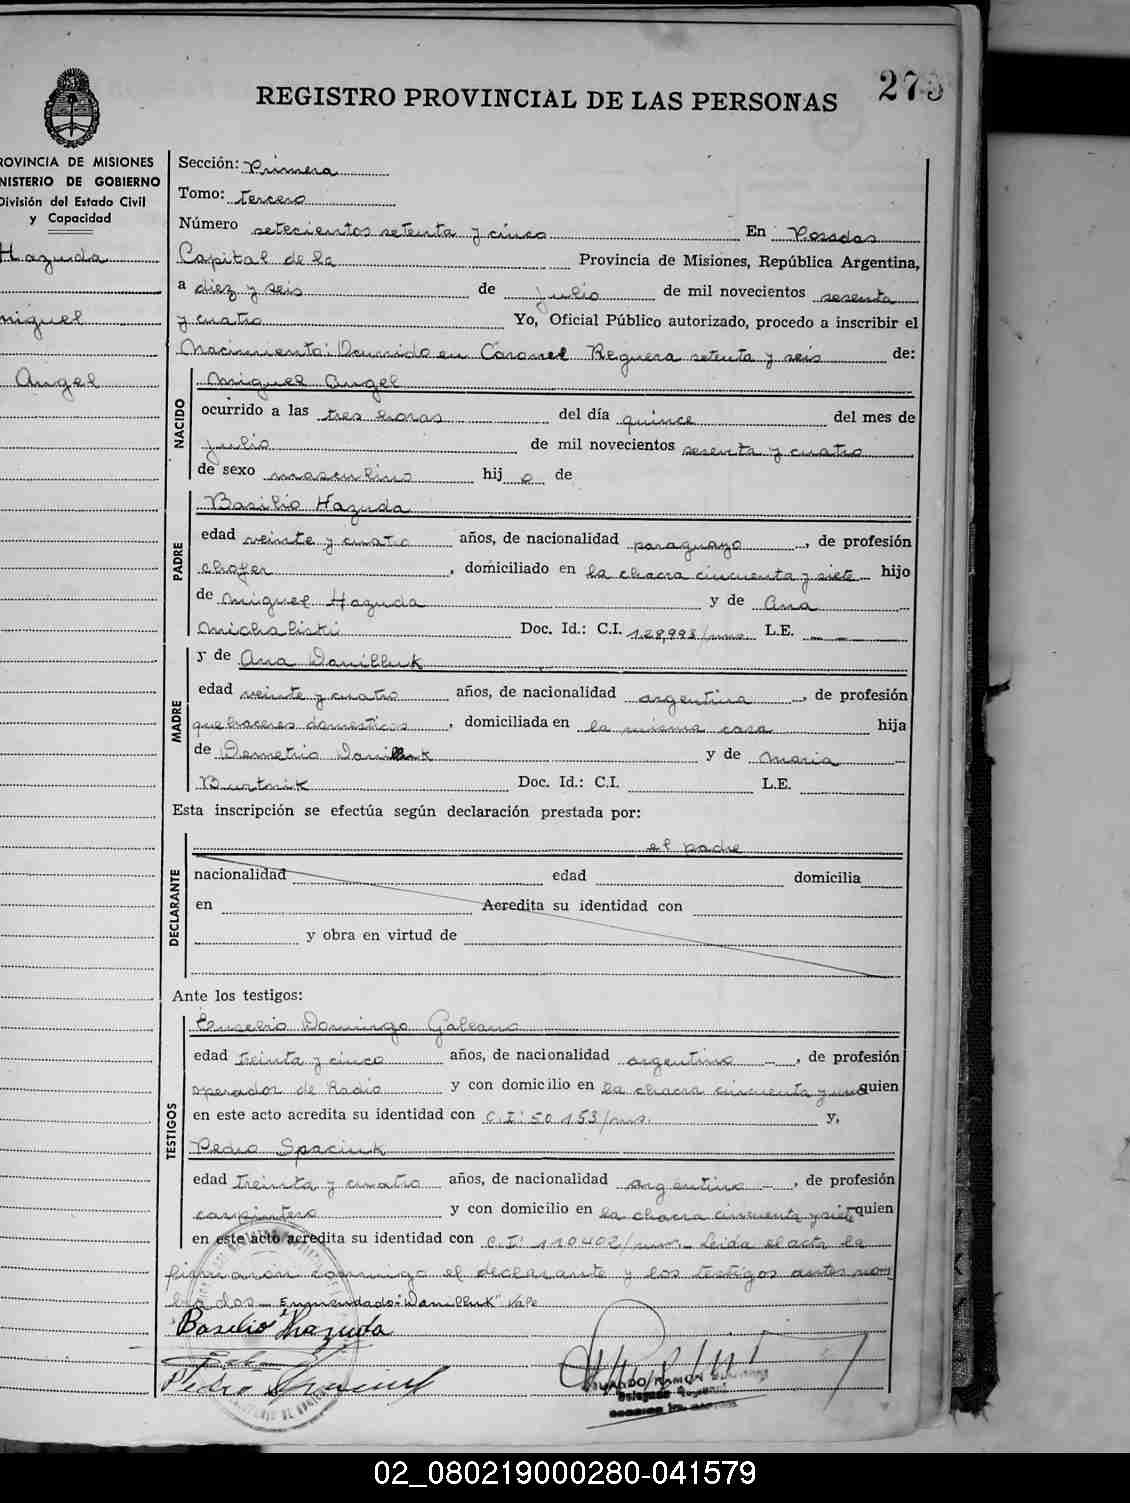 REGISTRO PROVINCIAL DE LAS PERSONAS
PROVINCIA DE MISIONES
MINISTERIO DE GOBIERNO
División del Estado Civil
y Capacidad
Hazuda
miguel
Angel
Sección: Primera
Tomo: tercero
Número setecientos setenta y cinco En Posadas
Capital de la Provincia de Misiones, República Argentina,
a diez y seis de julio de mil novecientos sesenta
y cuatro Yo, Oficial Público autorizado, procedo a inscribir el
Nacimiento: Ocurrido en Coronel Reguera setenta y seis de:
NACIDO
Miguel Angel
ocurrido a las tres horas del día quince del mes de
julio de mil novecientos sesenta y cuatro
de sexo masculino hij o de
PADRE
Basilio Hazuda
edad veinte y cuatro años, de nacionalidad paraguayo, de profesión
chofer, domiciliado en la chacra cincuenta y siete hijo
de Miguel Hazuda y de Ana
Michaliski Doc. Id.: C.I. 128,998/mnes. L.E. — —
MADRE
y de Ana Danilluk
edad veinte y cuatro años, de nacionalidad argentina, de profesión
quehaceres domesticos, domiciliada en la misma casa hija
de Demetrio Danilluk y de Maria
Burtnik Doc. Id.: C.I. L.E.
Esta inscripción se efectúa según declaración prestada por:
DECLARANTE
el padre
nacionalidad edad domicilia
en Acredita su identidad con
y obra en virtud de
Ante los testigos:
TESTIGOS
Eusebio Domingo Galeano
edad treinta y cinco años, de nacionalidad argentino —, de profesión
operador de Radio y con domicilio en la chacra cincuenta y una quien
en este acto acredita su identidad con C.I: 50.153/mns. y,
Pedro Spaciuk
edad treinta y cuatro años, de nacionalidad argentino —, de profesión
carpintero y con domicilio en la chacra cincuenta y siete quien
en este acto acredita su identidad con C.I: 110402/mns. Leida el acta la
firmaron conmigo el declarante y los testigos antes nom
brados — Enmendado: "Danilluk" Vale
Basilio Hazuda
Pedro Spaciuk
02_080219000280-041579